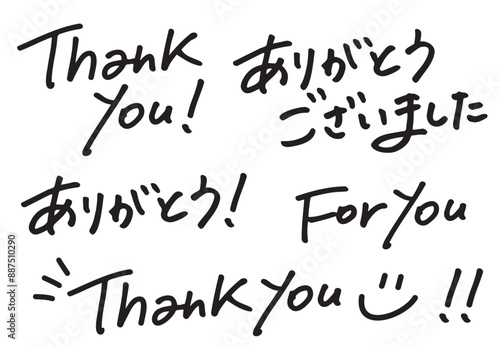 Thank You!
ありがとう
ございました
ありがとう!
For You
Thank You !!
Adobe Stock | #887510290